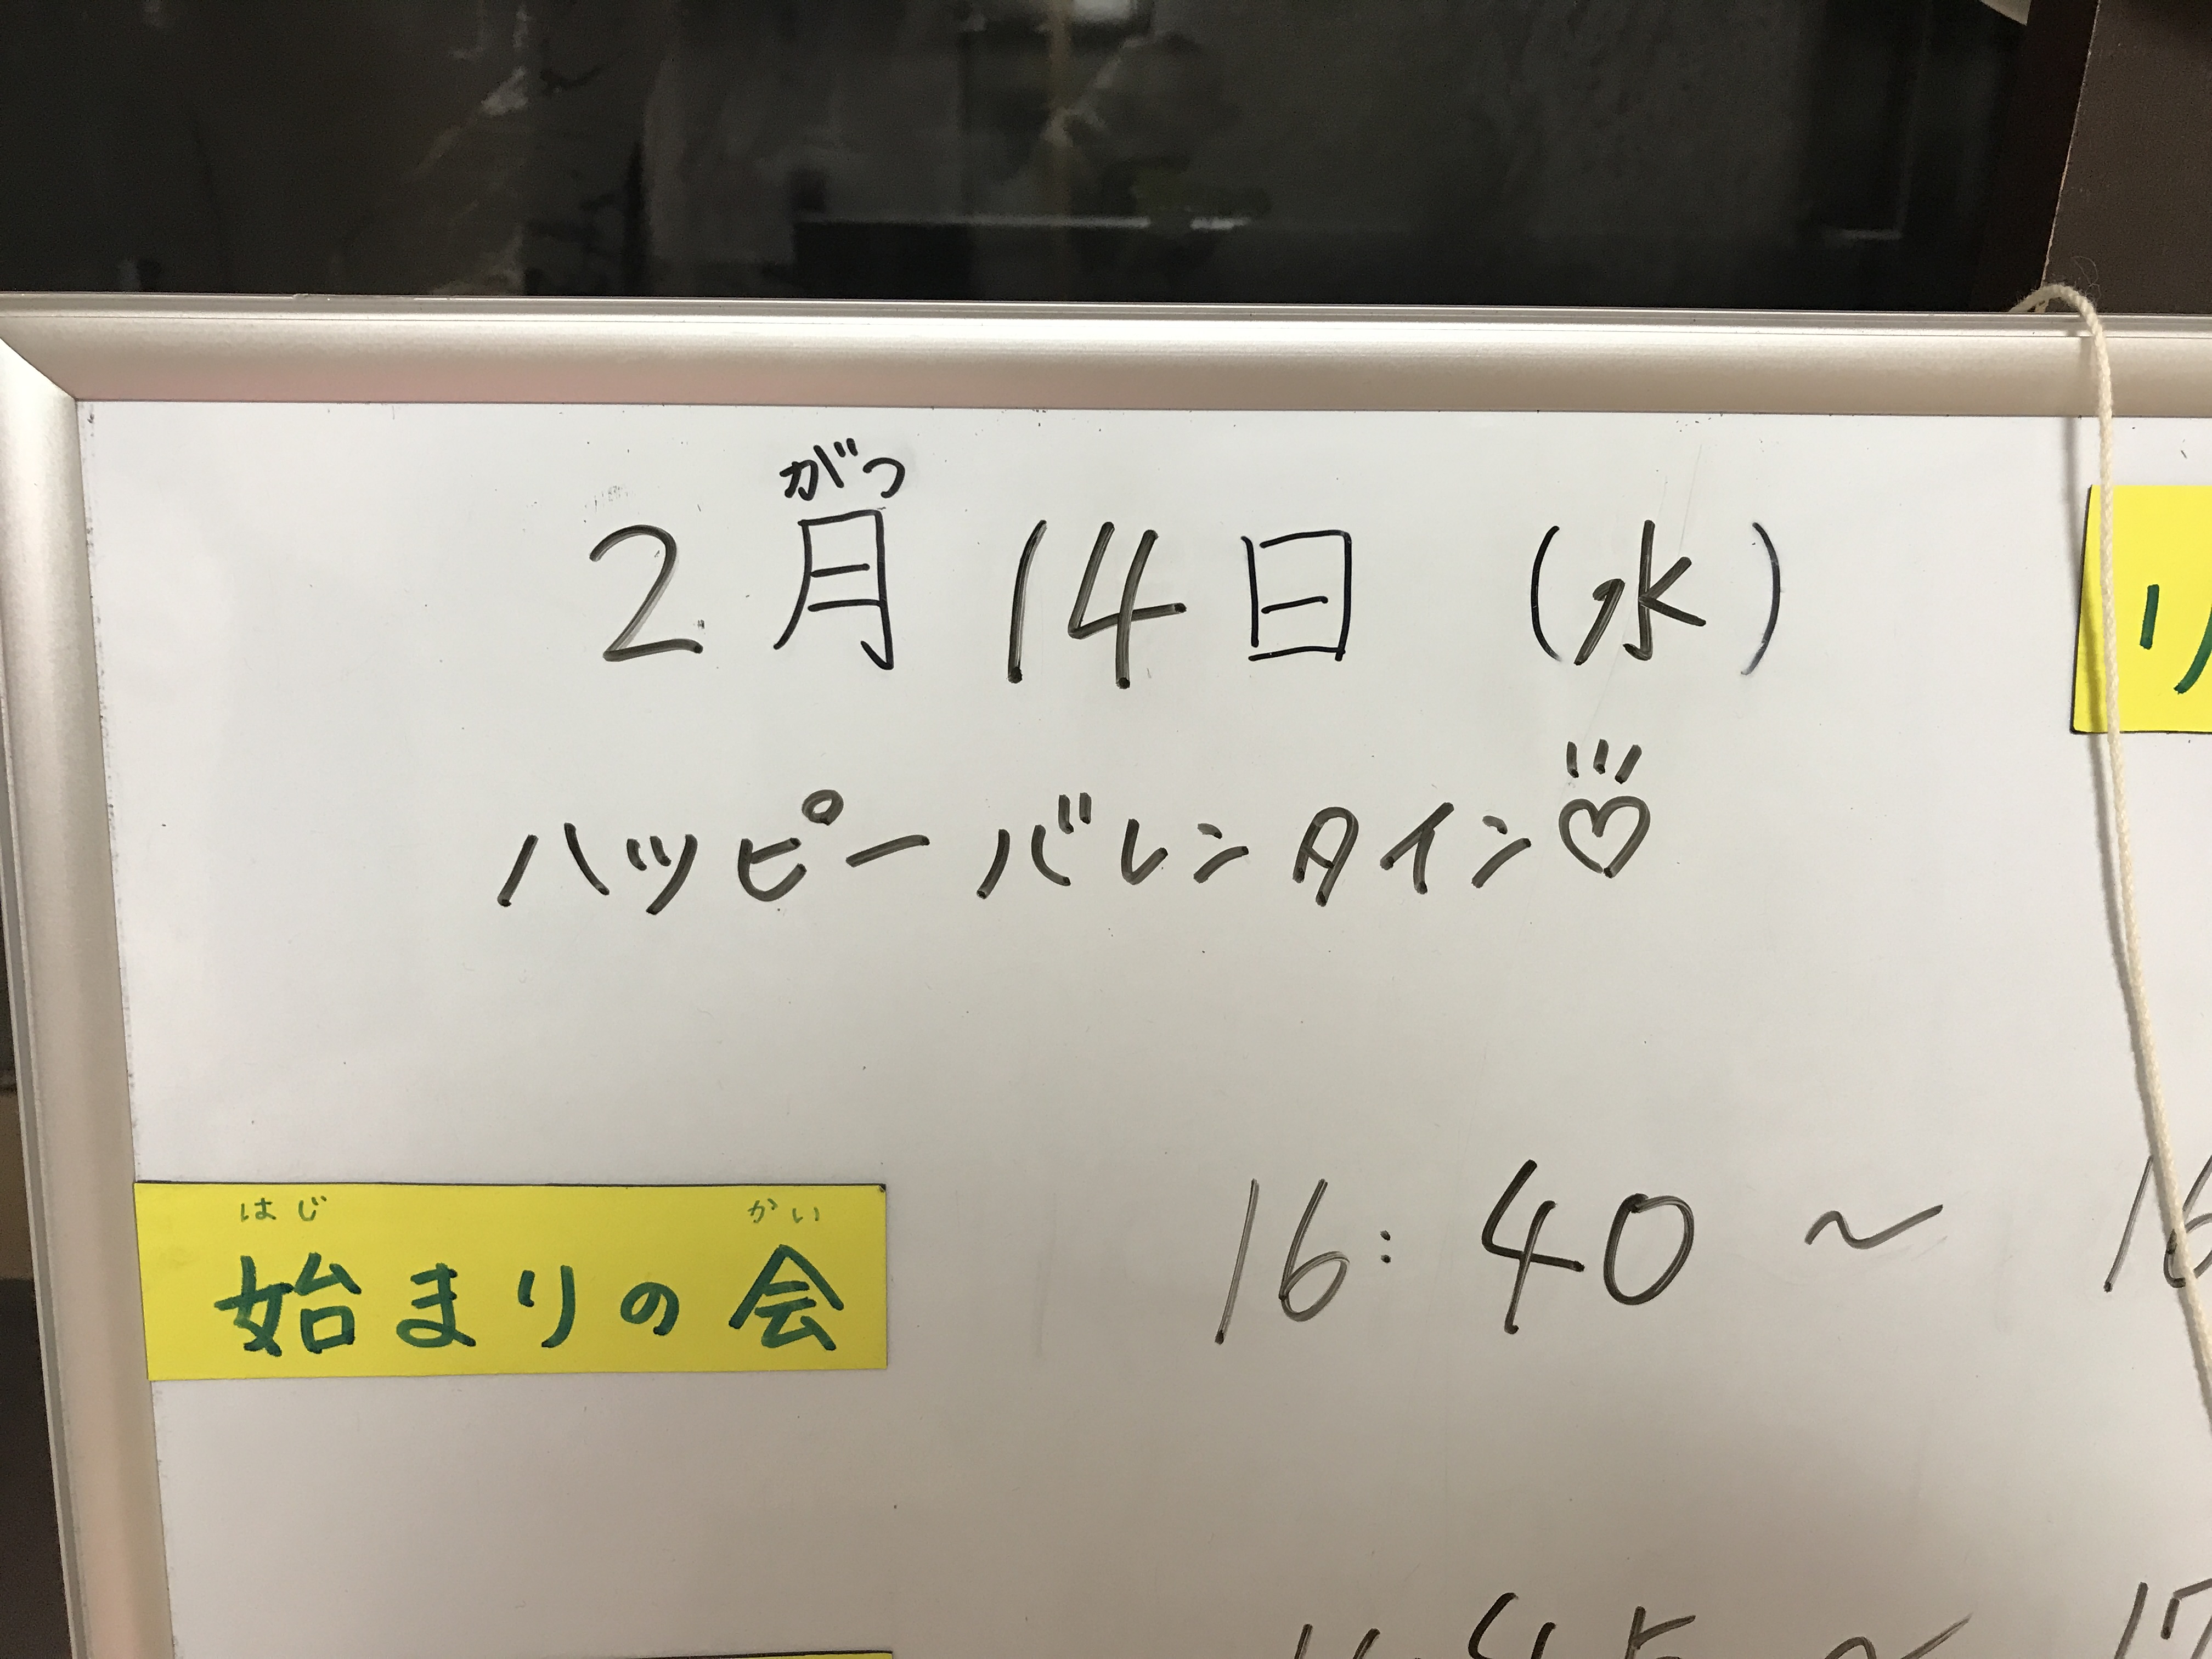 がつ
2月14日 (水)
ハッピーバレンタイン♡
はじ かい
始まりの会 16:40 ~ 16